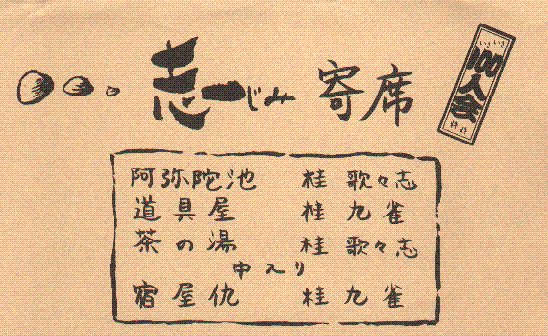 志じみ寄席
いきいき
100人会
阿弥陀池 桂 歌々志
道具屋 桂 九雀
茶の湯 桂 歌々志
中入り
宿屋仇 桂 九雀